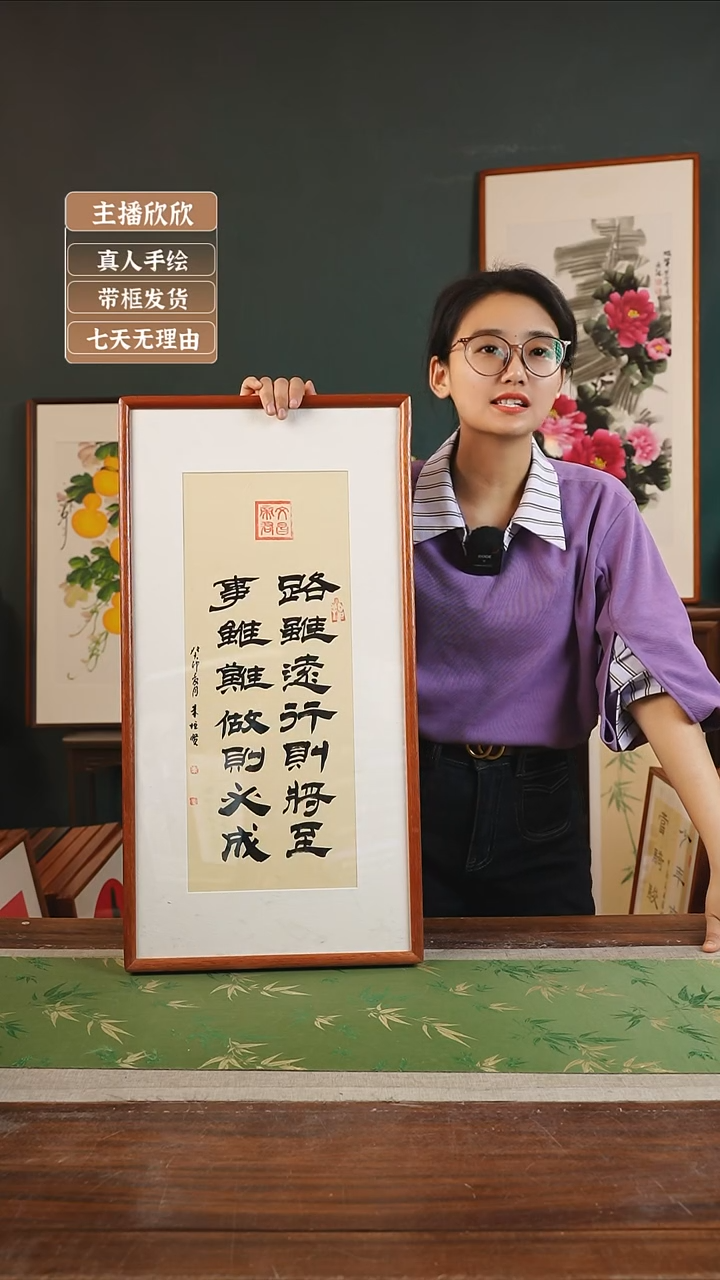 主播欣欣
真人手绘
带框发货
七天无理由
路雖遠行則將至
事雖難做則必成
癸卯